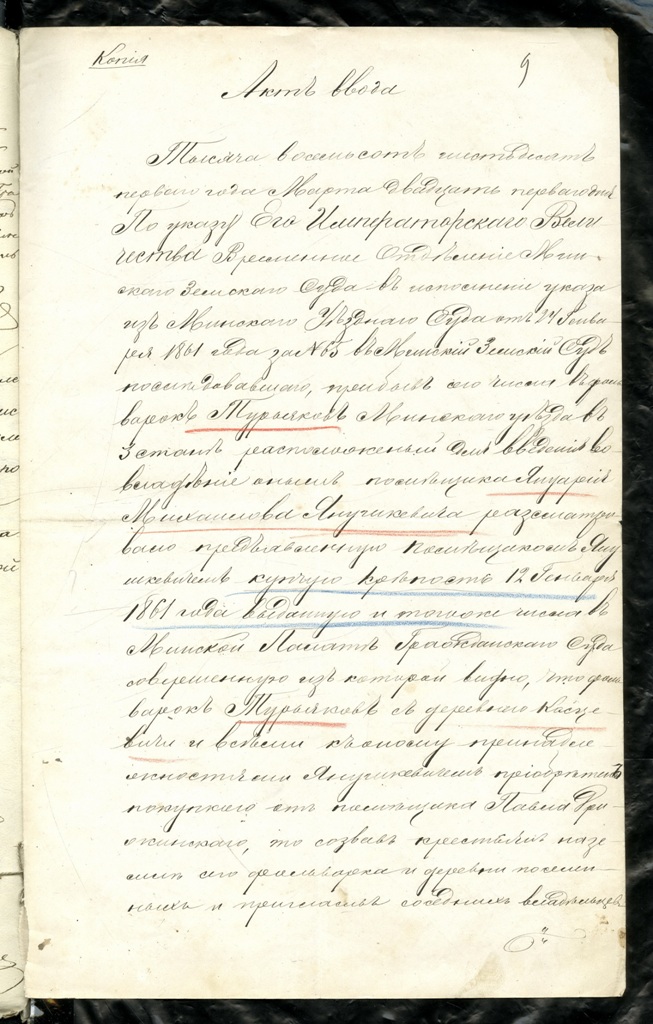 Копія
9
Актъ ввода
Тысяча восемьсотъ шестьдесятъ
перваго года Марта двадцать перваго дня
По указу Его Императорскаго Вели-
чества Временное Отдѣленіе Мин-
скаго Земскаго Суда въ исполненіе указа
изъ Минскаго Уѣзднаго Суда отъ 24 Генва-
ря 1861 года за № 65 въ Минскій Земскій Судъ
послѣдовавшаго, прибывъ сего числа въ фоль-
варокъ Турыяковъ Минскаго уѣзда въ
3 станѣ расположенный для введенія во
владѣніе онымъ помѣщика Януарія
Михаилова Янушкевича разсматри-
вало предъявленную помѣщикомъ Яну-
шкевичемъ купчую крѣпость 12 Генваря
1861 года выданную и того же числа въ
Минской Палатѣ Гражданскаго Суда
совершенную изъ которой видно, что фоль-
варокъ Турыяковъ съ деревнею Касце-
вичи и всѣми къ оному принадле-
жностями Янушкевичемъ пріобрѣтенъ
покупкою отъ помѣщика Павла
то созвавъ крестьянъ на зе-
млѣ сего фольварка и деревни поселен-
ныхъ и пригласивъ сосѣднихъ владѣльцевъ